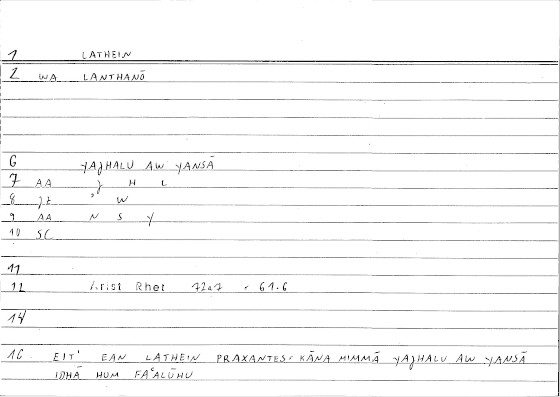 1 LATHEIN
2 WA LANTHANŌ
6 YAJHALU AW YANSĀ
7 AA J H L
8 JE ' W
9 AA N S Y
10 SC
11
12 Arist Rhet 72a7 - 61.6
14
16 EIT' EAN LATHEIN PRAXANTES - KĀNA MIMMĀ YAJHALU AW YANSĀ
IDHĀ HUM FAʿALŪHU